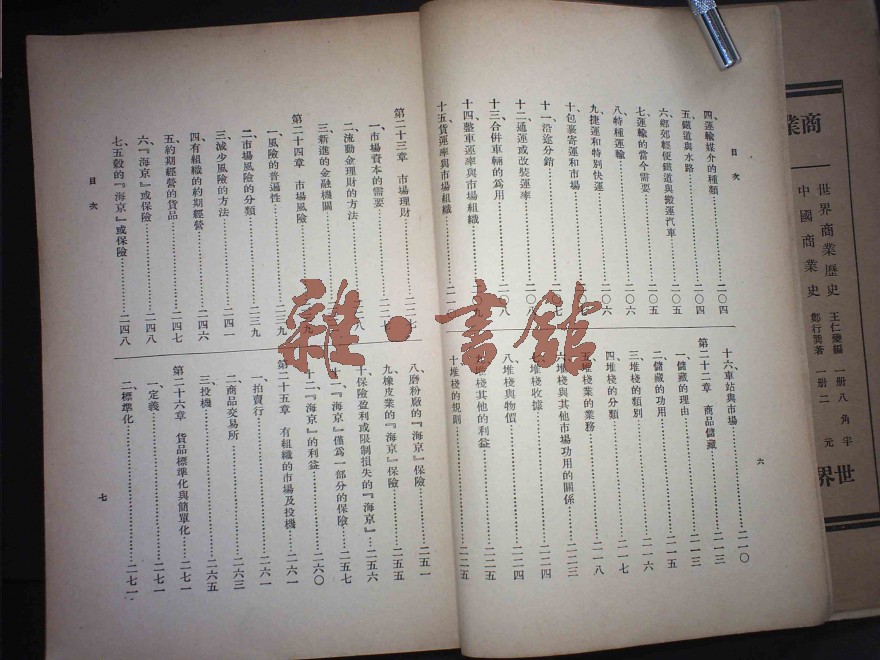 目次
四運輸媒介的種類……二〇四
五鐵道與水路……二〇四
六鄉郊輕便鐵道與搬運汽車……二〇五
七運輸的當今需要……二〇五
八特種運輸……二〇六
九捷運和特別快運……二〇六
十包裹寄運和市場
十一沿途分銷
十二通運或改裝運率……二〇八
十三合併車輛的爲用……二〇八
十四整車運率與市場組織
十五貨運率與市場組織
十六車站與市場……二一〇
第二十二章 商品儲藏……二一三
一儲藏的理由……二一三
二儲藏的功用……二一五
三堆棧的類別……二一六
四堆棧的分類……二一七
五堆棧的業務……二一八
六堆棧與其他市場功用的關係……二二三
七堆棧收據……二二四
八堆棧與物價……二二四
九堆棧其他的利益……二二五
十堆棧的規則……二二五
六
第二十三章 市場理財……二二七
一、市場資本的需要……二二七
二、流動金理財的方法
三、新進的金融機關
第二十四章 市場風險
一、風險的普遍性……二三九
二、市場風險的分類……二三九
三、減少風險的方法……二四一
四、有組織的約期經營……二四六
五、約期經營的貨品……二四七
六、『海京』或保險……二四八
七、五穀的『海京』或保險……二四八
目次
八、磨粉廠的『海京』保險……二五一
九、橡皮業的『海京』保險……二五五
十、保險盈利或限制損失的『海京』……二五六
十一、『海京』僅爲一部分的保險……二五七
十二、『海京』的利益……二六〇
第二十五章 有組織的市場及投機……二六一
一、拍賣行……二六一
二、商品交易所……二六三
三、投機……二六五
第二十六章 貨品標準化與簡單化……二七一
一、定義……二七一
二、標準化……二七一
七
商業
世界商業歷史 王仁夔編 一册八角半
中國商業史 鄭行巽著 一册二元
世界
雜·書館